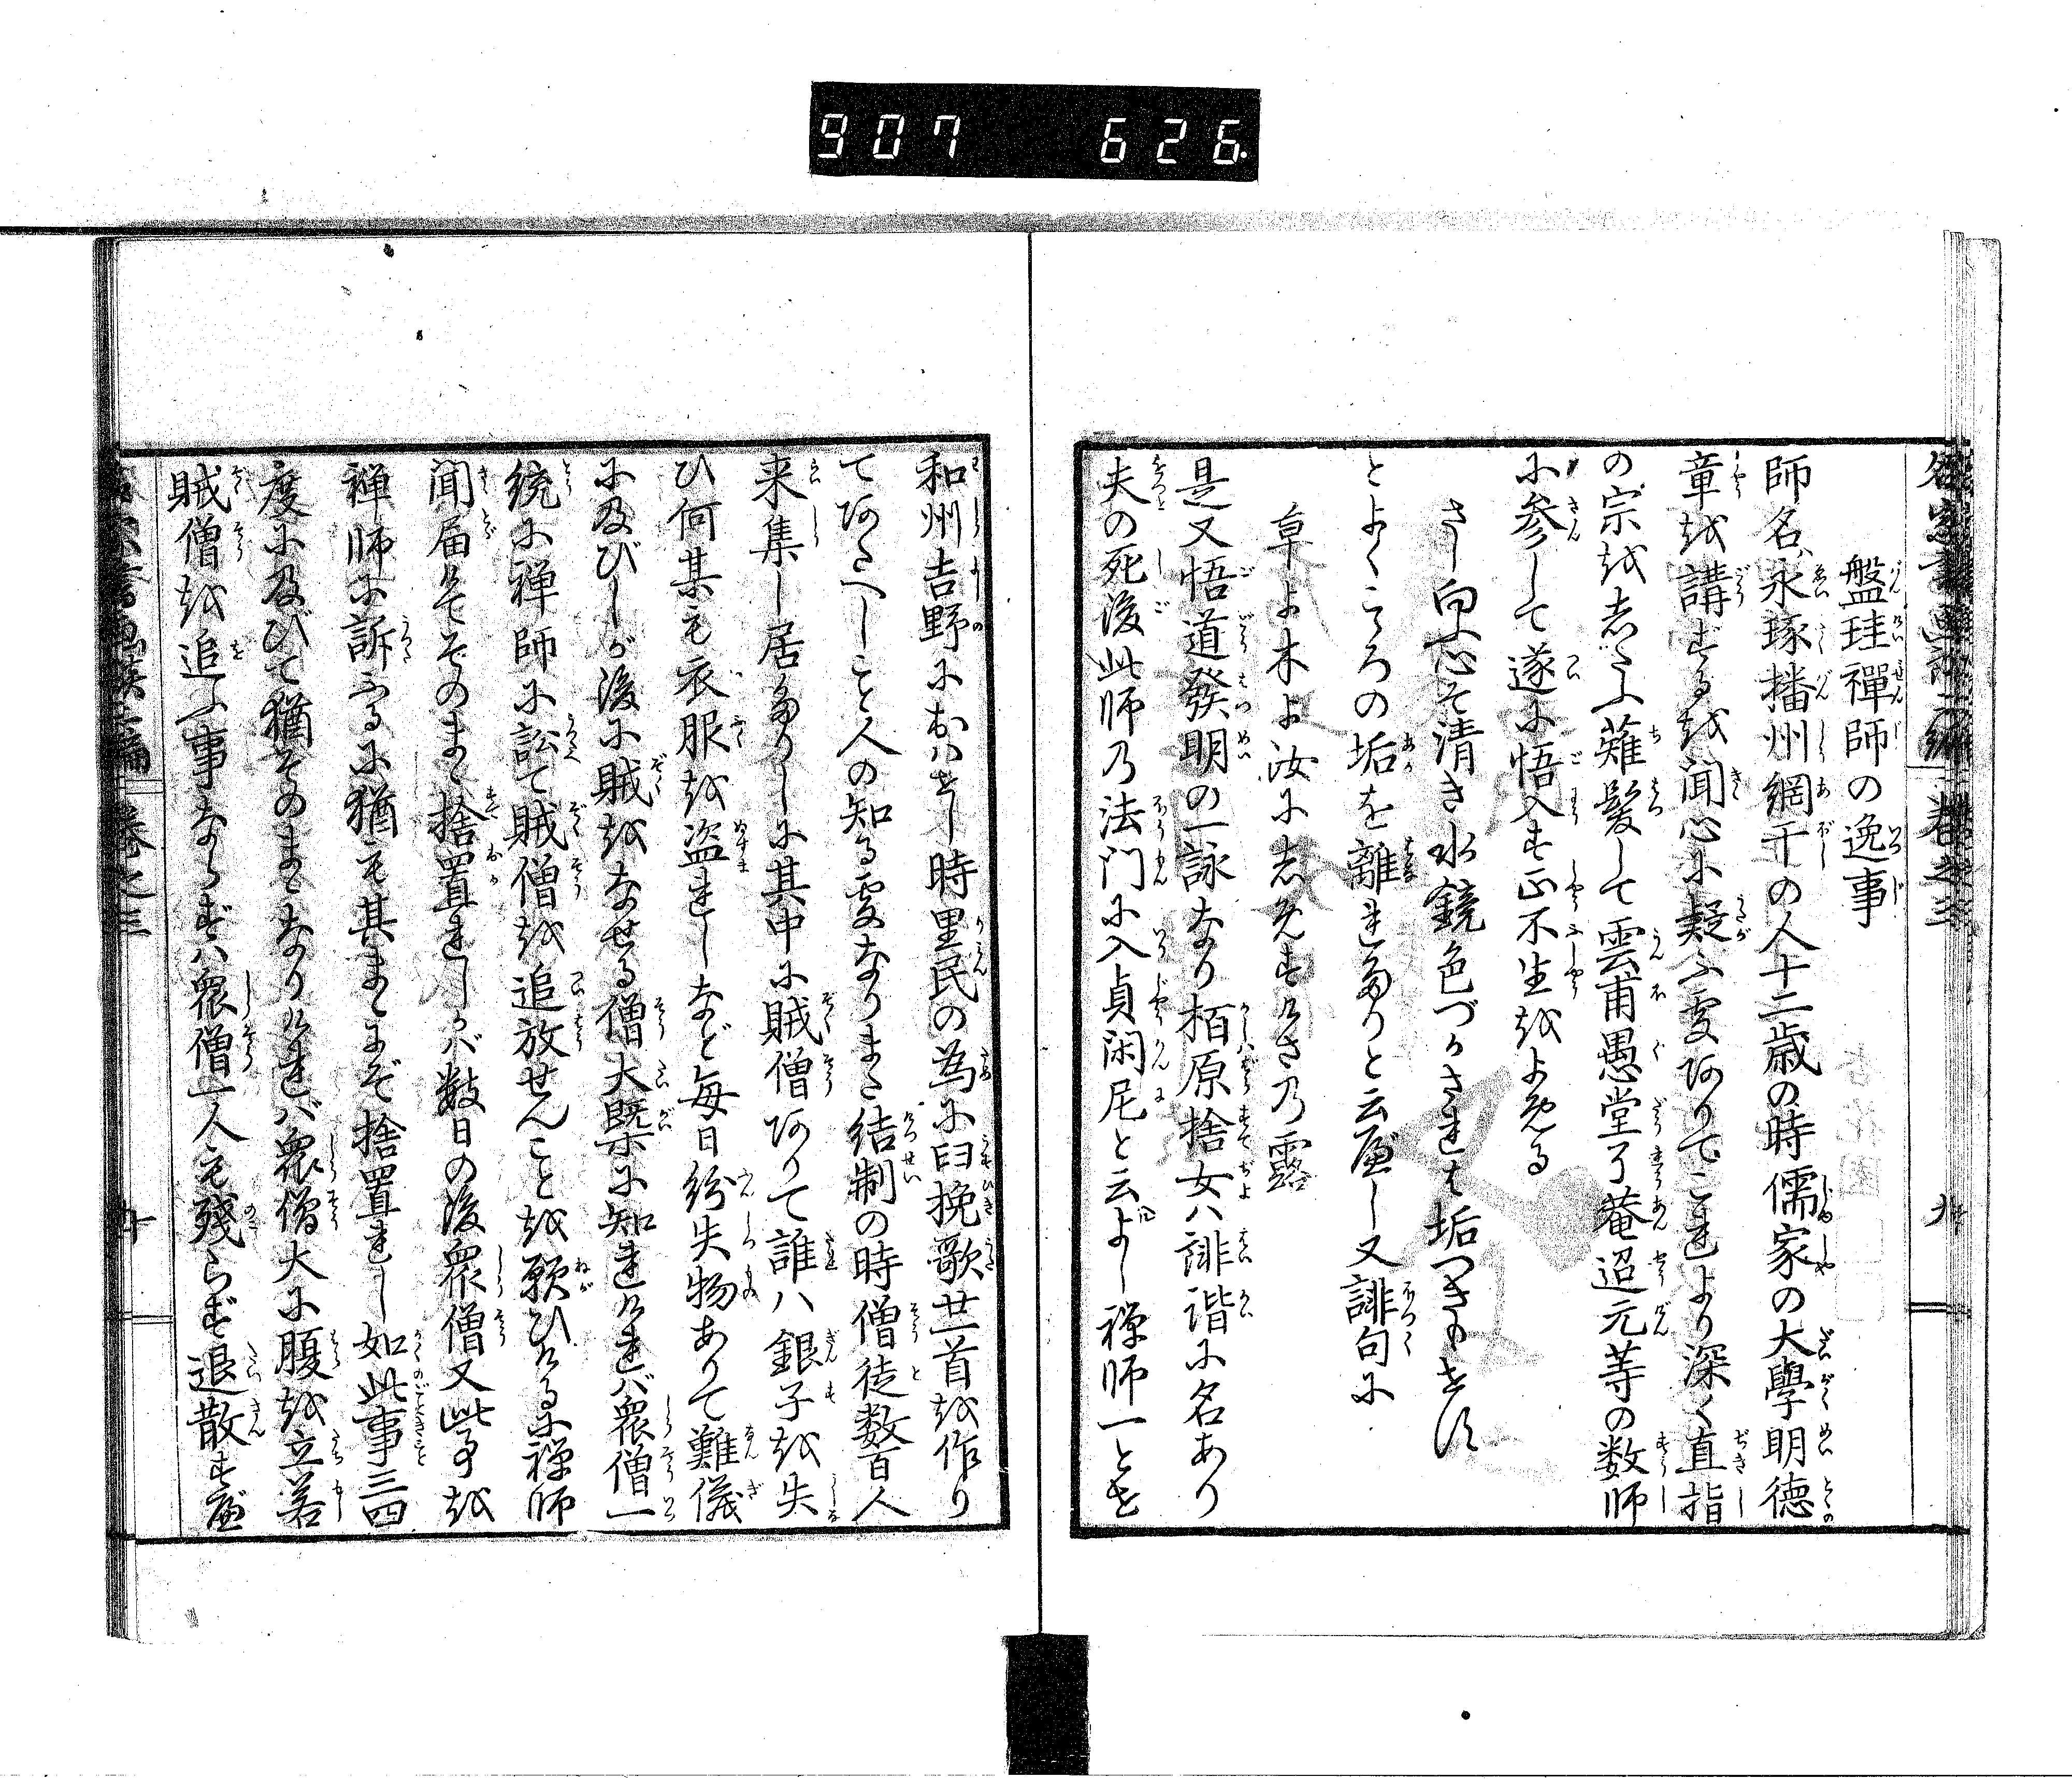 907 626
盤珪禪師の逸事
師名ハ永琢播州網干の人十二歳の時儒家の大學明徳
章を講ずるを聞心に疑ふ処ありてこれより深く直指
の宗をしたふ薙髪して雲甫愚堂了菴迢元等の数師
に参して遂に悟入す正不生をよめる
さし向心そ清き水鏡色づかされは垢つきもせす
とよくこゝろの垢を離れたりと云べし又誹句に
草よ木よ汝にしめすけさの露
是又悟道發明の一詠なり栢原捨女ハ誹諧に名あり
夫の死後此師の法門に入貞閑尼と云よし禅師一とせ
和州吉野におハせし時里民の為に臼挽歌廿一首を作り
てあたへしこと人の知る処なりまた結制の時僧徒数百人
来集し居たりしに其中に賊僧ありて誰ハ銀子を失
ひ何某も衣服を盗れしなど毎日紛失物ありて難儀
に及びしが後に賊をなせる僧大槩に知れけれバ衆僧一
統に禅師に訟て賊僧を追放せんことを願ひけるに禅師
聞届けてそのまゝ捨置れしかバ数日の後衆僧又此事を
禅師に訴ふるに猶も其まゝにぞ捨置れし如此事三四
度に及びて猶そのまゝなりけれバ衆僧大に腹を立若
賊僧を追ふ事ならずハ衆僧一人も残らず退散すべ